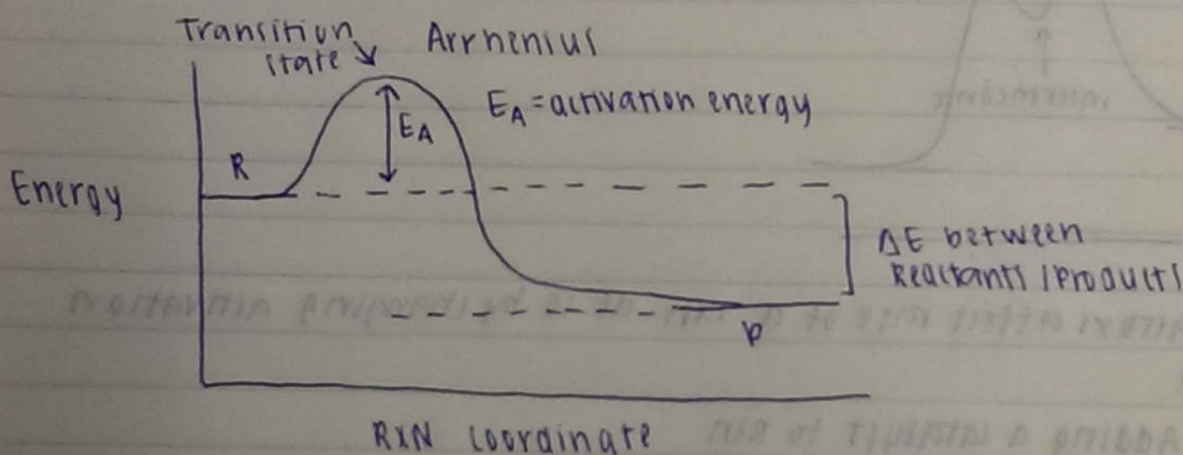 Transition Arrhenius
state
EA = activation energy
EA
R
Energy
ΔE between
Reactants/Products
P
RXN coordinate